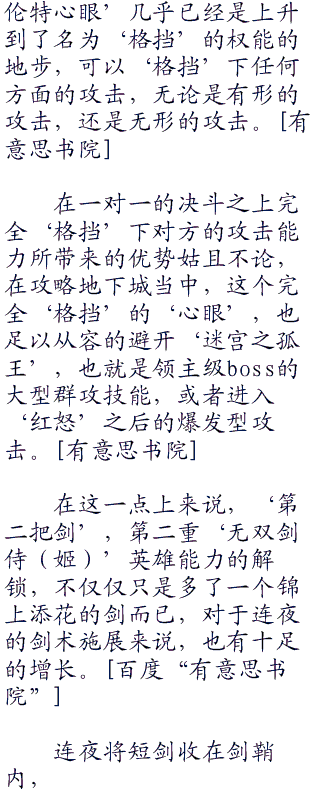 伦特心眼’几乎已经是上升
到了名为‘格挡’的权能的
地步，可以‘格挡’下任何
方面的攻击，无论是有形的
攻击，还是无形的攻击。[有
意思书院]
在一对一的决斗之上完
全‘格挡’下对方的攻击能
力所带来的优势姑且不论，
在攻略地下城当中，这个完
全‘格挡’的‘心眼’，也
足以从容的避开‘迷宫之孤
王’，也就是领主级boss的
大型群攻技能，或者进入
‘红怒’之后的爆发型攻
击。[有意思书院]
在这一点上来说，‘第
二把剑’，第二重‘无双剑
侍（姬）’英雄能力的解
锁，不仅仅只是多了一个锦
上添花的剑而已，对于连夜
的剑术施展来说，也有十足
的增长。[百度“有意思书
院”]
连夜将短剑收在剑鞘
内，